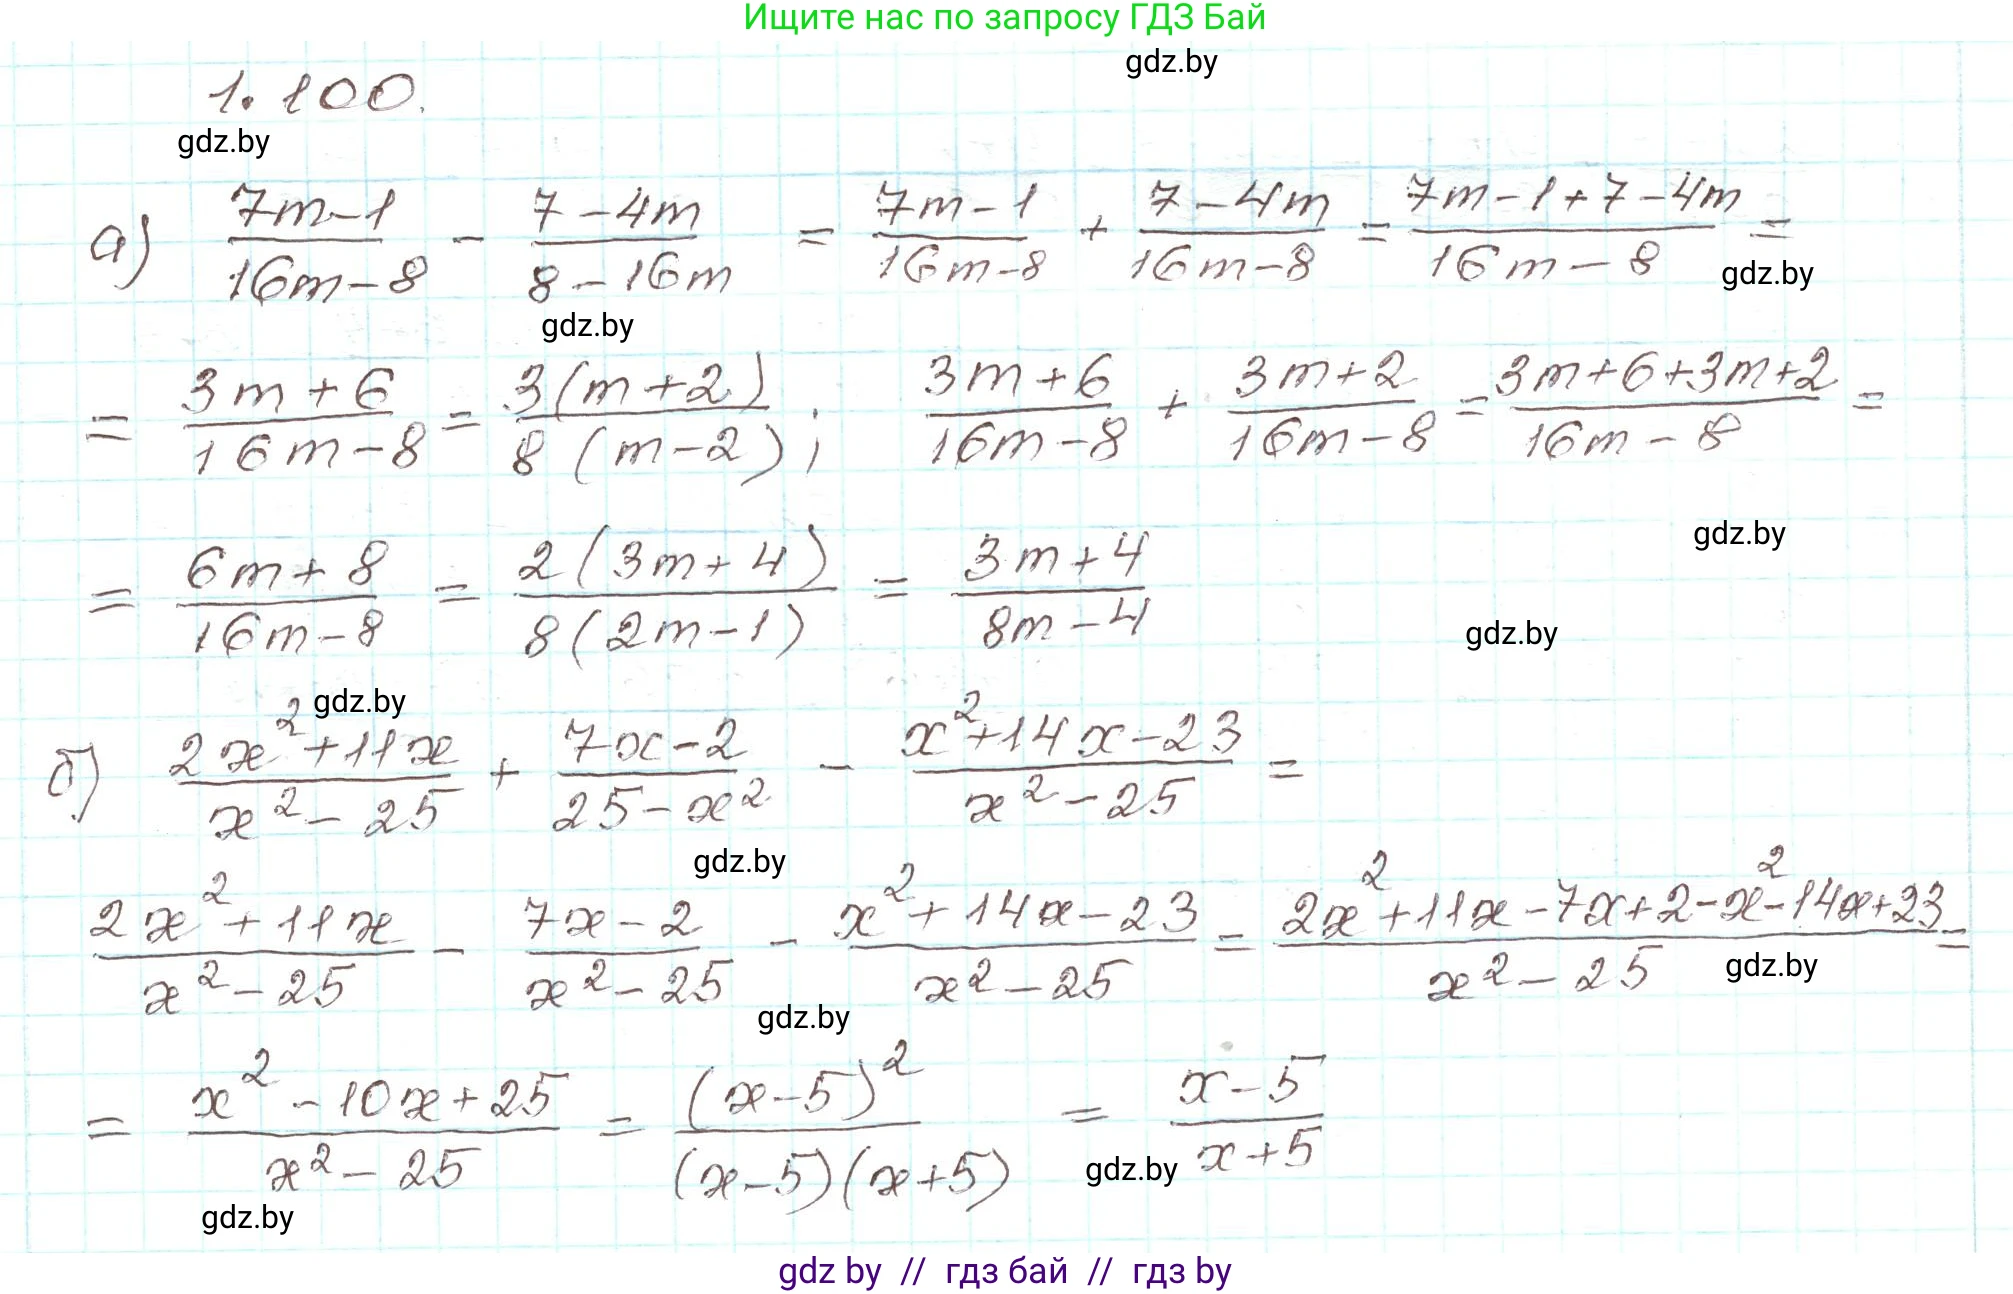 Ищите нас по запросу ГДЗ Бай
gdz.by
1.100.
gdz.by
а) (7m-1)/(16m-8) - (7-4m)/(8-16m) = (7m-1)/(16m-8) + (7-4m)/(16m-8) = (7m-1+7-4m)/(16m-8) =
gdz.by
gdz.by
= (3m+6)/(16m-8) = 3(m+2)/8(m-2); (3m+6)/(16m-8) + (3m+2)/(16m-8) = (3m+6+3m+2)/(16m-8) =
gdz.by
= (6m+8)/(16m-8) = 2(3m+4)/8(2m-1) = (3m+4)/(8m-4)
gdz.by
gdz.by
б) (2x²+11x)/(x²-25) + (7x-2)/(25-x²) - (x²+14x-23)/(x²-25) =
gdz.by
(2x²+11x)/(x²-25) - (7x-2)/(x²-25) - (x²+14x-23)/(x²-25) = (2x²+11x-7x+2-x²-14x+23)/(x²-25) =
gdz.by
gdz.by
= (x²-10x+25)/(x²-25) = (x-5)²/(x-5)(x+5) = (x-5)/(x+5)
gdz.by
gdz.by
gdz by // гдз бай // гдз by